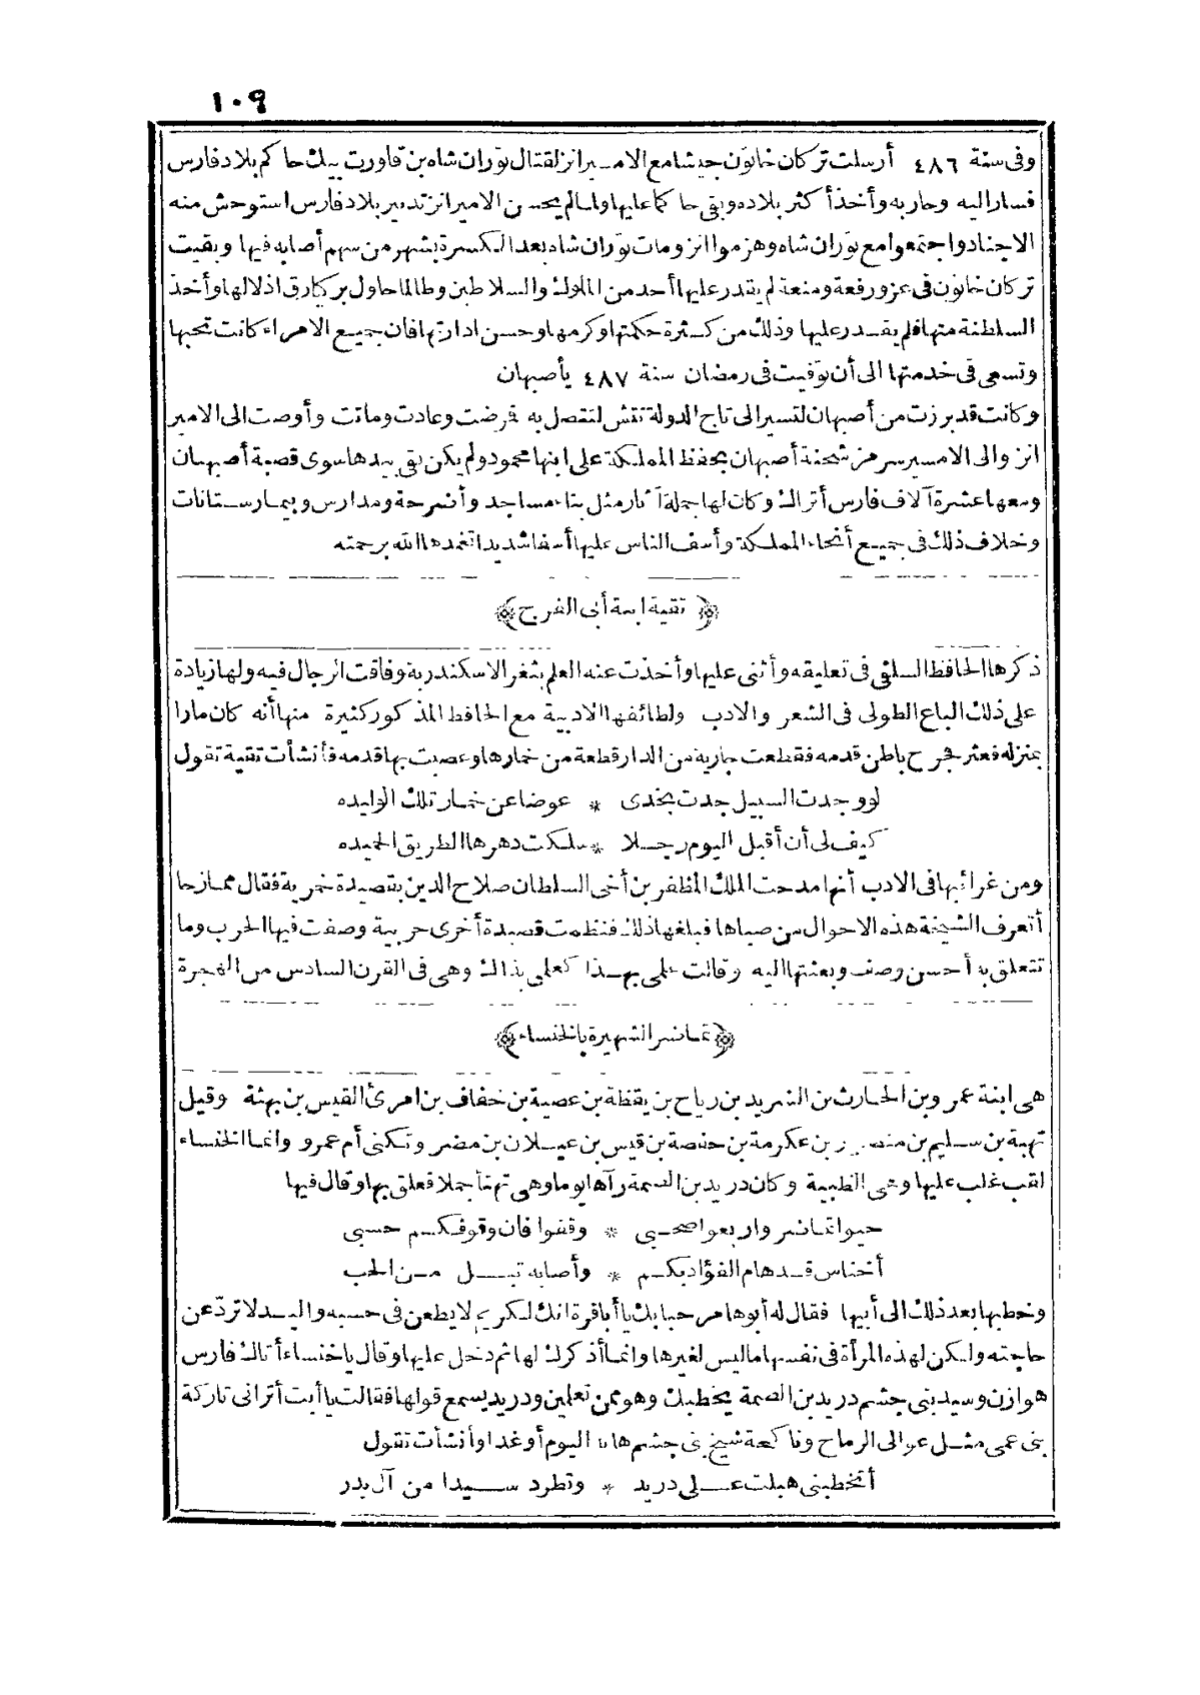 ١٠٩
وفى سنة ٤٨٦ أرسلت تركان خاتون جيشا مع الامير انز لقتال توران شاه بن قاورت بيك حاكم بلاد فارس
فسار اليه وحاربه وأخذ أكثر بلاده وبقى حاكما عليها ولما لم يحسن الامير انز تدبير بلاد فارس استوحش منه
الاجناد واجتمعوا مع توران شاه وهزموا انز ومات توران شاه بعد الكسرة بشهر من سهم أصابه فيها وبقيت
تركان خاتون فى عز ورفعة ومنعة لم يقدر عليها أحد من الملوك والسلاطين وطالما حاول بركيارق اذلالها وأخذ
السلطنة منها فلم يقدر عليها وذلك من كثرة حكمتها وكرمها وحسن ادارتها فان جميع الامراء كانت تحبها
وتسعى فى خدمتها الى أن توفيت فى رمضان سنة ٤٨٧ بأصبهان
وكانت قد برزت من أصبهان لتسير الى تاج الدولة تتش لتتصل به فرضت وعادت وماتت وأوصت الى الامير
انز والى الامير سرمز شحنة أصبهان بحفظ المملكة على ابنها محمود ولم يكن بقى بيدها سوى قصبة أصبهان
ومعها عشرة آلاف فارس أتراك وكان لها جملة آثار مثل بناء مساجد وأضرحة ومدارس وبيمارستانات
وخلاف ذلك فى جميع أنحاء المملكة وأسف الناس عليها أسفا شديدا تغمدها الله برحمته
﴿ تقية ابنة أبى الفرج ﴾
ذكرها الحافظ السلفى فى تعليقه وأثنى عليها وأخذت عنه العلم بثغر الاسكندرية وفاقت الرجال فيه ولها زيادة
على ذلك الباع الطولى فى الشعر والادب ولطائفها الادبية مع الحافظ المذكور كثيرة منها أنه كان مارا
بمنزله فعثر فجرح باطن قدمه فقطعت جارية من الدار قطعة من خمارها وعصبت بها قدمه فأنشأت تقية تقول
لو وجدت السبيل جدت بخدى * عوضا عن خمار تلك الوليده
كيف لى أن أقبل اليوم رجلا * سلكت دهرها الطريق الحميده
ومن غرائبها فى الادب أنها مدحت الملك المظفر بن أخى السلطان صلاح الدين بقصيدة خمرية فقال ممازحا
أتعرف الشيخة هذه الاحوال من صباها فبلغها ذلك فنظمت قصيدة أخرى حربية وصفت فيها الحرب وما
تتعلق به أحسن وصف وبعثتها اليه وقالت علمى بهذا كعلمى بذاك وهى فى القرن السادس من الهجرة
﴿ تماضر الشهيرة بالخنساء ﴾
هى ابنة عمرو بن الحارث بن الشريد بن رياح بن يقظة بن عصية بن خفاف بن امرئ القيس بن بهثة وقيل
تهبة بن سليم بن منصور بن عكرمة بن حفصة بن قيس بن عيلان بن مضر وتكنى أم عمرو وانما الخنساء
لقب غلب عليها وهى الظبية وكان دريد بن الصمة رآها يوما وهى تهنأ جملا فعلق بها وقال فيها
حيوا تماضر واربعوا صحبى * وقفوا فان وقوفكم حسبى
أخناس قد هام الفؤاد بكم * وأصابه تبل من الحب
وخطبها بعد ذلك الى أبيها فقال له أبوها مرحبا بك يا أبا قرة انك لكريم لا يطعن فى حسبه والسيد لا ترد عن
حاجته ولكن لهذه المرأة فى نفسها ما ليس لغيرها وانما أذكرك لها ثم دخل عليها وقال يا خنساء أتاك فارس
هوازن وسيد بنى جشم دريد بن الصمة يخطبك وهو ممن تعلمين ودريد يسمع قولها فقالت يا أبت أترانى تاركة
بنى عمى مثل عوالى الرماح وناكحة شيخ بنى جشم هامة اليوم أو غد وأنشأت تقول
أتخطبنى هبلت على دريد * وتطرد سيدا من آل بدر